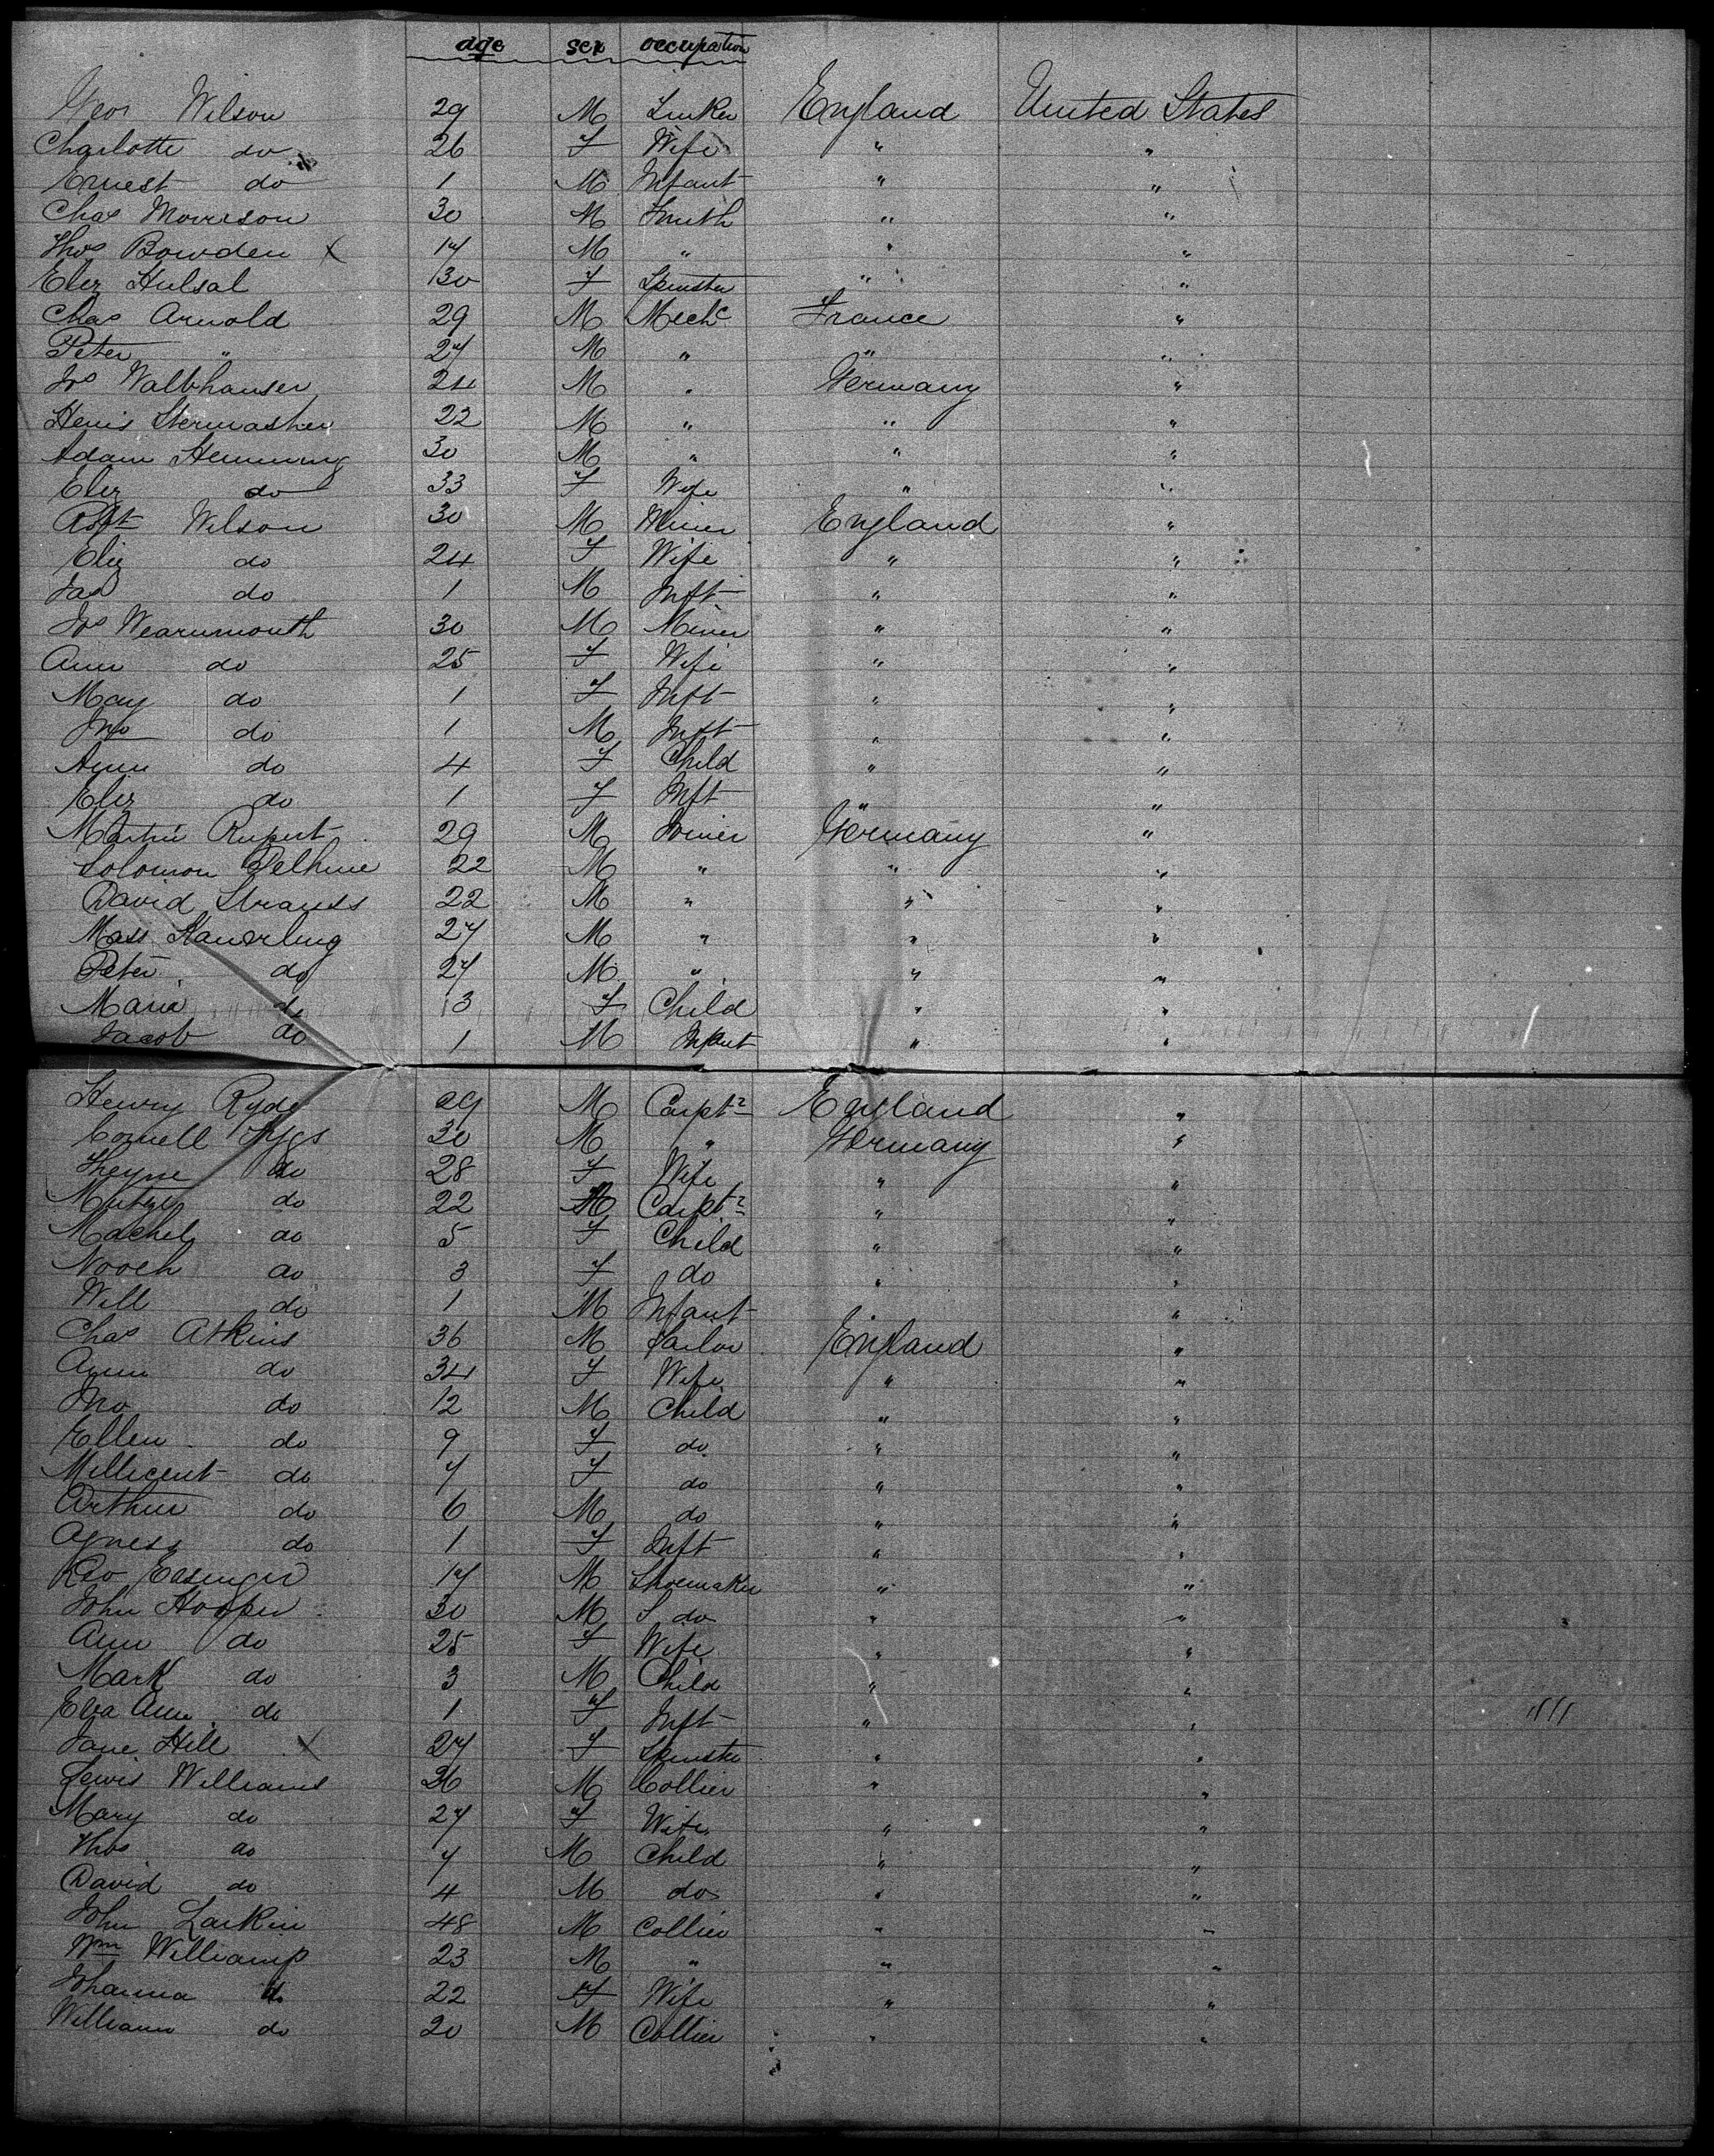 age sex occupation
Geo Wilson 29 M England United States
Charlotte do 26 F Wife " "
Ernest do 1 M Infant " "
Chas Morrison 30 M Smith " "
Thos Bowden X 17 M " " "
Eliz Hulsal 30 F Spinster " "
Chas Arnold 29 M Mechc France "
Peter " 27 M " " "
Jos Walbhauser 24 M " Germany "
22 M " " "
Adam Hemming 30 M " " "
Eliz do 33 F Wife " "
Robt Wilson 30 M Miner England "
Eliz do 24 F Wife " "
Jas do 1 M Inft " "
Jos Wearmouth 30 M Miner " "
Ann do 25 F Wife " "
May do 1 F Inft " "
Jno do 1 M Inft " "
Ann do 4 F Child " "
Eliz do 1 F Inft " "
Martin Rupert 29 M Joiner Germany "
Solomon 22 M " " "
David Strauss 22 M " " "
27 M " " "
Peter do 27 M " " "
Maria do 3 F Child " "
Jacob do 1 M Infant " "
Henry Ryde 29 M Carptr England "
30 M " Germany "
do 28 F Wife " "
do 22 M Carptr " "
do 5 F Child " "
do 3 F do " "
Will do 1 M Infant " "
Chas Atkins 36 M Sailor England "
Ann do 34 F Wife " "
Jno do 12 M Child " "
Ellen do 9 F do " "
Millicent do 7 F do " "
Arthur do 6 M do " "
Agness do 1 F Inft " "
17 M Shoemaker " "
John Hooper 30 M S do " "
Ann do 25 F Wife " "
Mark do 3 M Child " "
Eva Ann do 1 F Inft " "
Jane Hill X 27 F Spinster " "
Lewis Williams 36 M Collier " "
Mary do 27 F Wife " "
Thos do 7 M Child " "
David do 4 M do " "
John Larkin 48 M Collier " "
Wm Williams 23 M " " "
Johanna do 22 F Wife " "
William do 20 M Collier " "